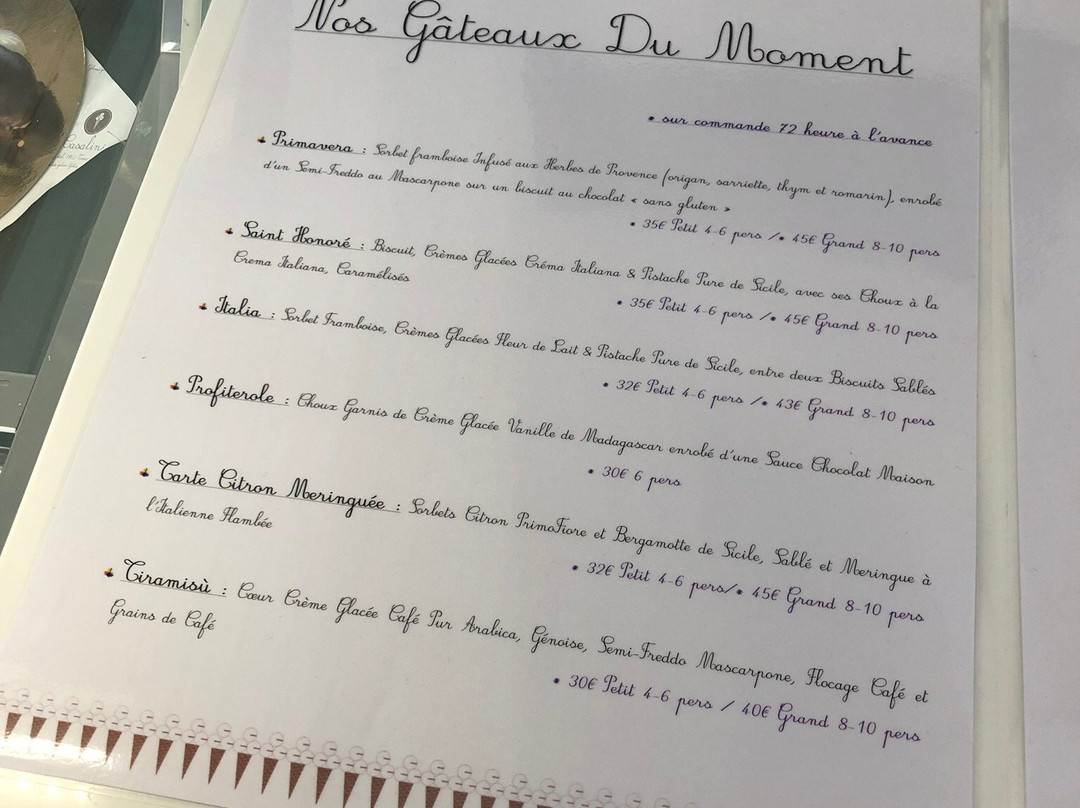 Nos Gâteaux Du Moment
• sur commande 72 heure à l'avance
Primavera : Sorbet framboise Infusé aux Herbes de Provence (origan, sarriette, thym et romarin), enrobé
d'un Semi-Freddo au Mascarpone sur un biscuit au chocolat « sans gluten »
• 35€ Petit 4-6 pers /• 45€ Grand 8-10 pers
Saint Honoré : Biscuit, Crèmes Glacées Créma Italiana & Pistache Pure de Sicile, avec ses Choux à la
Crema Italiana, Caramélisés
• 35€ Petit 4-6 pers /• 45€ Grand 8-10 pers
Italia : Sorbet Framboise, Crèmes Glacées Fleur de Lait & Pistache Pure de Sicile, entre deux Biscuits Sablés
• 32€ Petit 4-6 pers /• 43€ Grand 8-10 pers
Profiterole : Choux Garnis de Crème Glacée Vanille de Madagascar enrobé d'une Sauce Chocolat Maison
• 30€ 6 pers
Tarte Citron Meringuée : Sorbets Citron PrimoFiore et Bergamotte de Sicile, Sablé et Meringue à
l'Italienne Flambée
• 32€ Petit 4-6 pers/• 45€ Grand 8-10 pers
Tiramisù : Cœur Crème Glacée Café Pur Arabica, Génoise, Semi-Freddo Mascarpone, Flocage Café et
Grains de Café
• 30€ Petit 4-6 pers / 40€ Grand 8-10 pers
Casalini